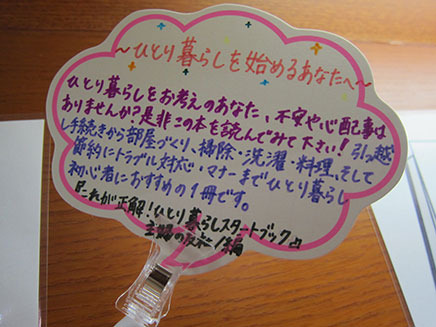 ～ひとり暮らしを始めるあなたへ～
ひとり暮らしをお考えのあなた、不安や心配事は
ありませんか?是非この本を読んでみて下さい!引っ越
し手続きから部屋づくり、掃除・洗濯・料理、そして
節約にトラブル対応・マナーまでひとり暮らし
初心者におすすめの1冊です。
『これが正解!ひとり暮らしスタートブック』
主婦の友社/編